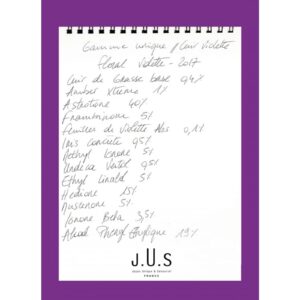 Gamme unique / Cuir Violette
Floral Violette - 2017
Cuir de Grasse base 0,4%
Amber Xtreme 1%
Astrotone 40%
Frambinone 5%
Feuilles de Violette Abs 0,1%
Iris concrete 0,5%
Methyl Ionone 5%
Undeca Vertol 0,5%
Ethyl Linalol 5%
Hedione 15%
Muscenone 5%
Ionone Beta 3,5%
Alcool Phenyl Ethylique 19%
J.U.S
FRANCE